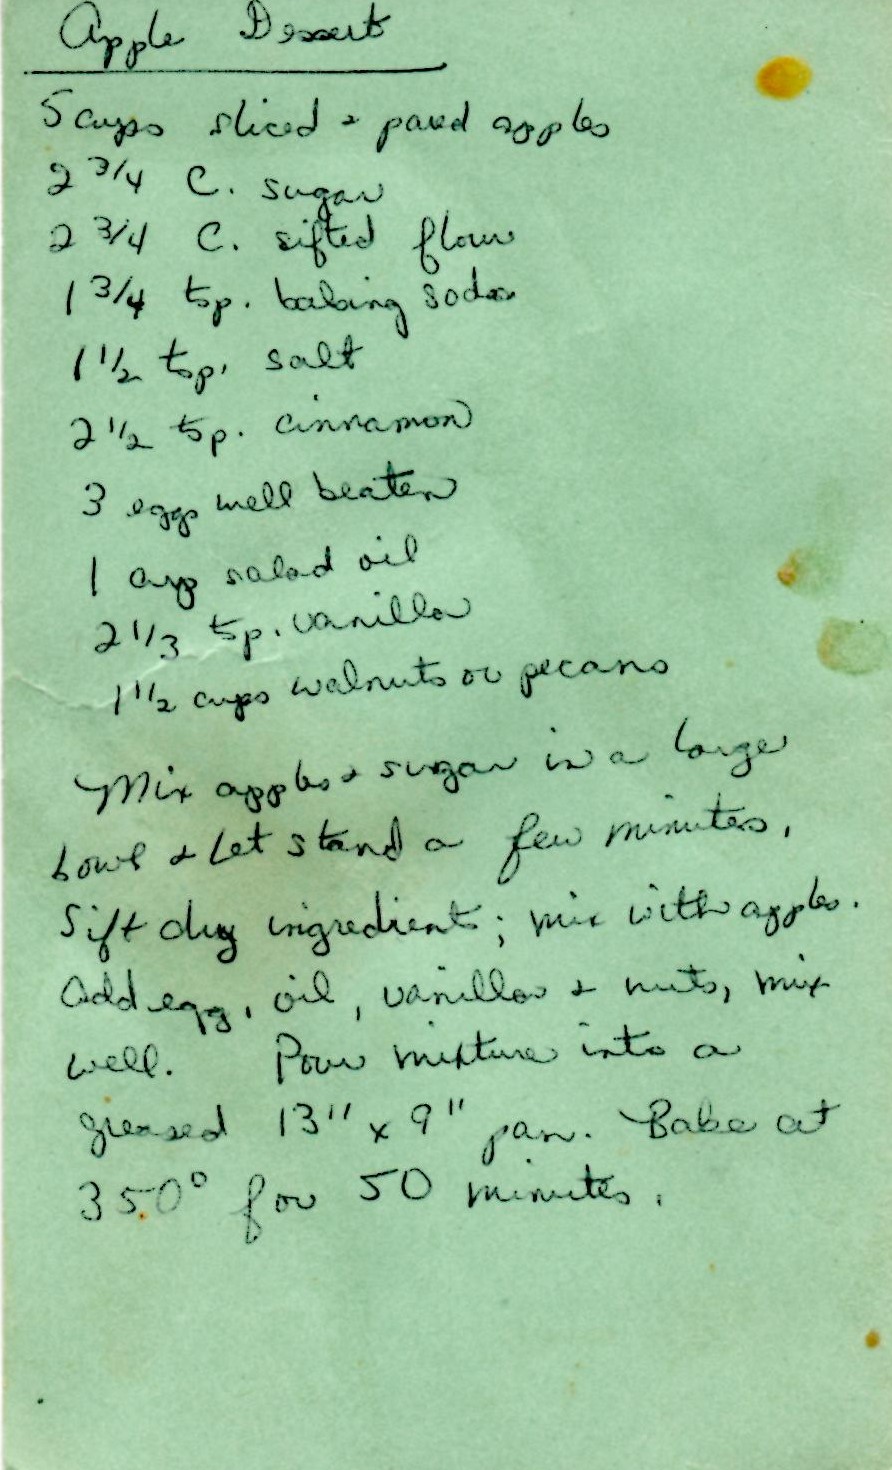 Apple Dessert
5 cups sliced & pared apples
2 3/4 C. sugar
2 3/4 C. sifted flour
1 3/4 tsp. baking soda
1 1/2 tsp. salt
2 1/2 tsp. cinnamon
3 eggs well beaten
1 cup salad oil
2 1/3 tsp. vanilla
1 1/2 cups walnuts or pecans
Mix apples & sugar in a large
bowl & let stand a few minutes.
Sift dry ingredients; mix with apples.
Add egg, oil, vanilla & nuts, mix
well. Pour mixture into a
greased 13" x 9" pan. Bake at
350° for 50 minutes.